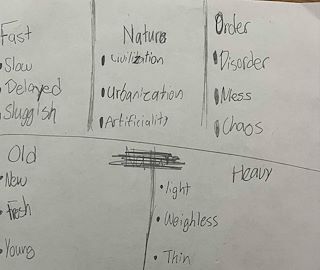 Fast
• Slow
• Delayed
• Sluggish
Nature
• Civilization
• Urbanization
• Artificiality
Order
• Disorder
• Mess
• Chaos
Old
• New
• Fresh
• Young
Heavy
• light
• Weighless
• Thin